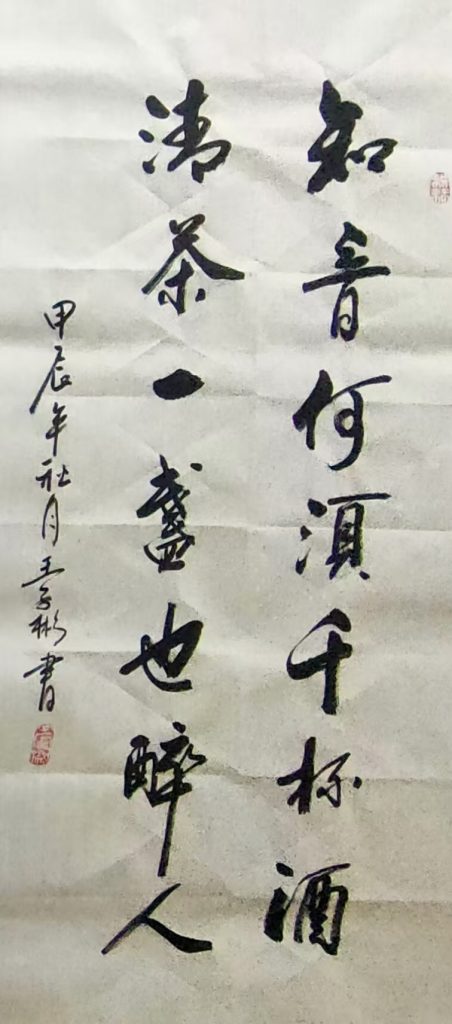 知音何须千杯酒
清茶一盏也醉人
甲辰年社月王子彬書